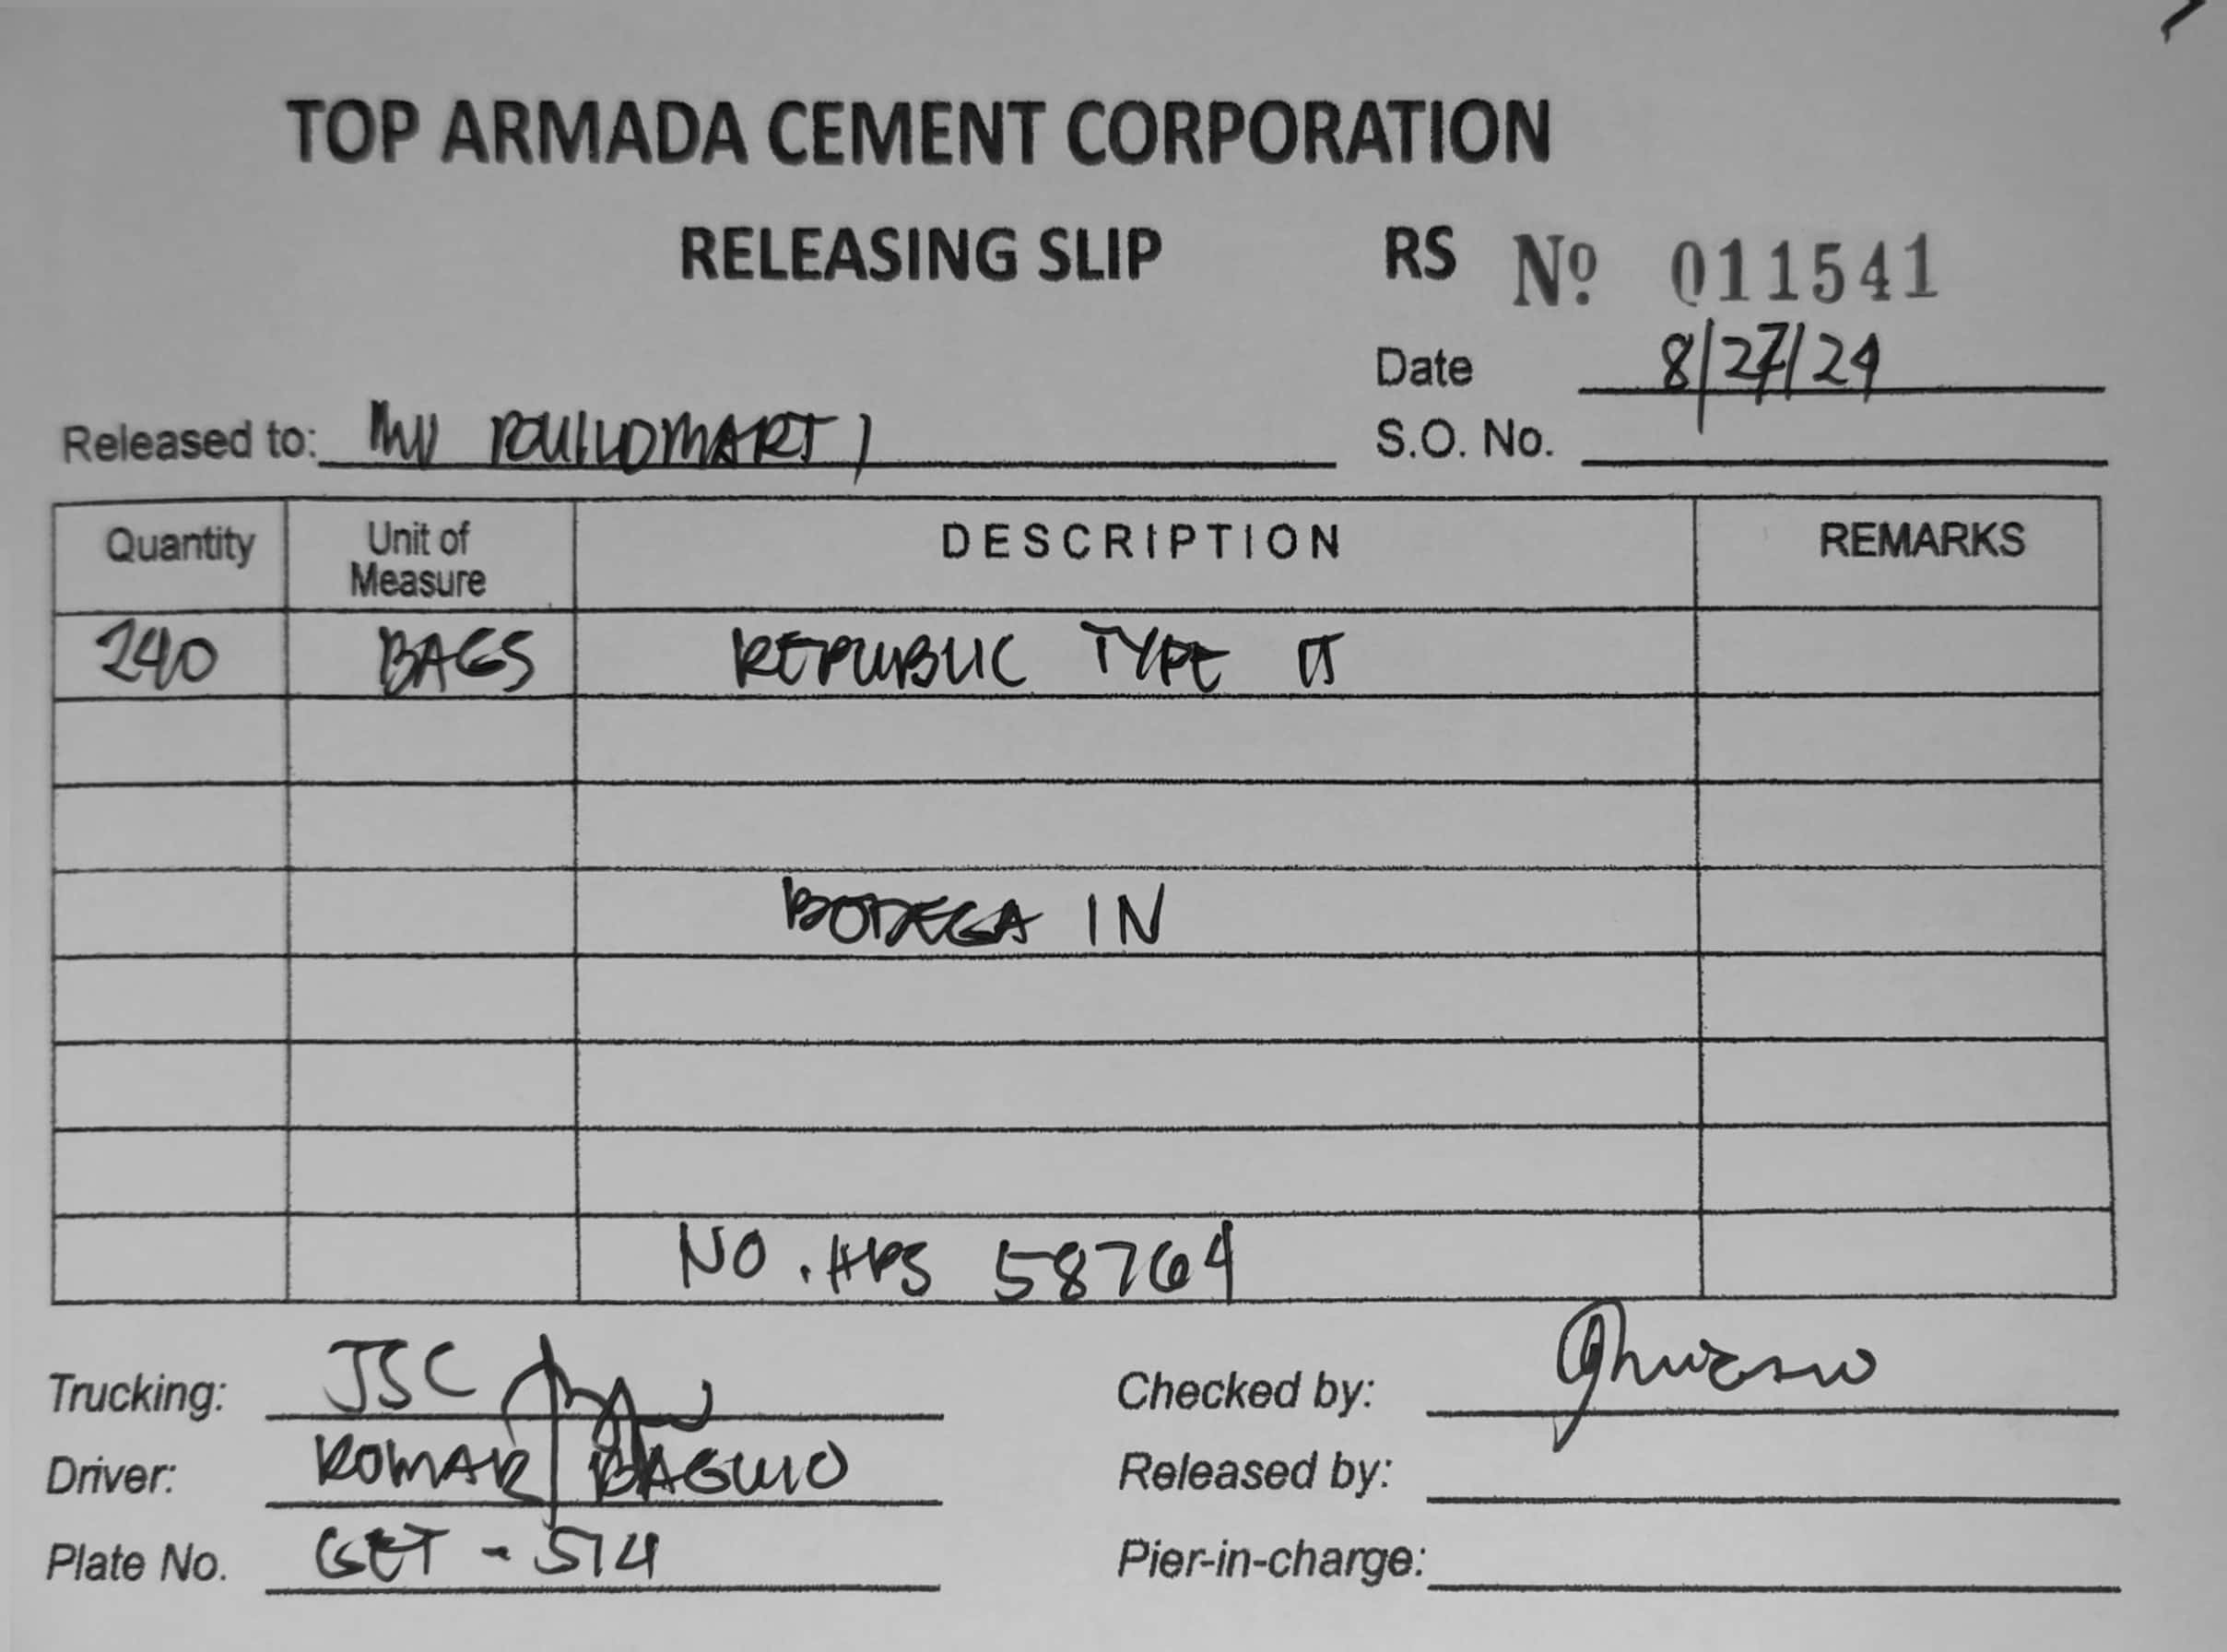 TOP ARMADA CEMENT CORPORATION
RELEASING SLIP RS Nº 011541
Date 8/27/24
Released to: BUILDMART 1 S.O. No.
Quantity Unit of Measure DESCRIPTION REMARKS
240 BAGS REPUBLIC TYPE II
BODEGA IN
NO. 58764
Trucking: JSC Checked by:
Driver: ROMAR BAGUIO Released by:
Plate No. GET - 514 Pier-in-charge: